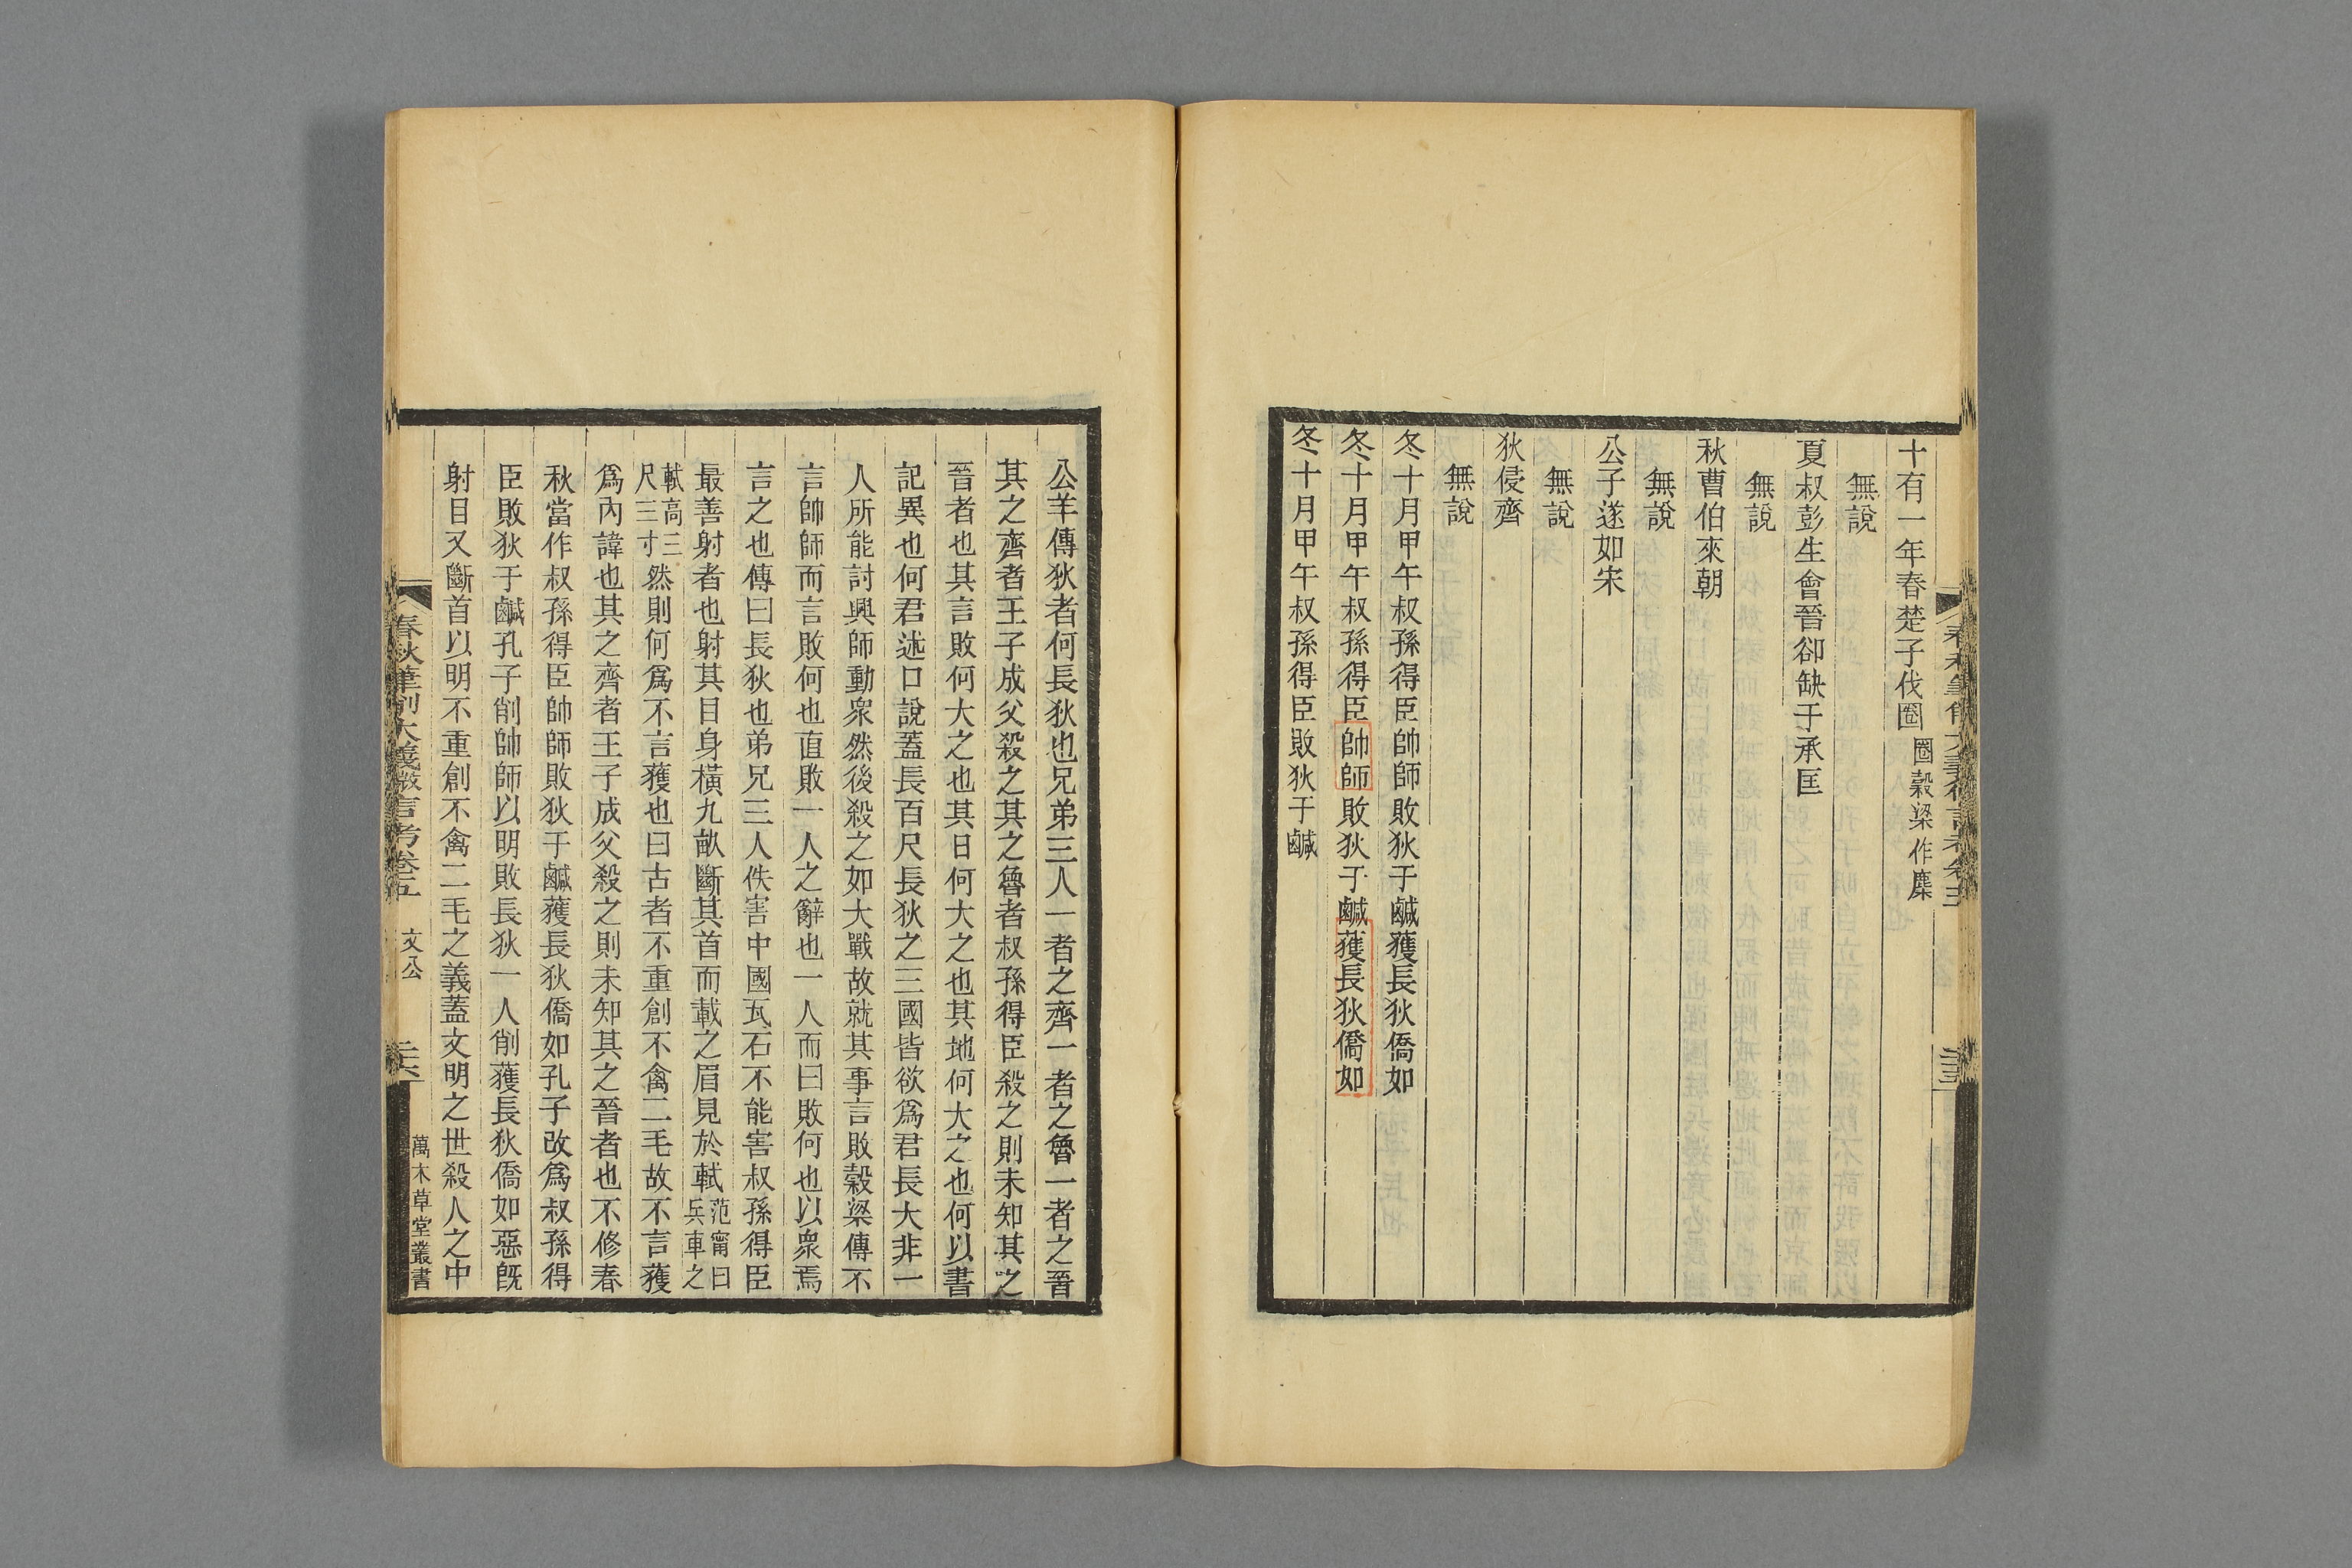 十有一年春楚子伐圈圈穀梁作麇
無說
夏叔彭生會晉郤缺于承匡
無說
秋曹伯來朝
無說
公子遂如宋
無說
狄侵齊
無說
冬十月甲午叔孫得臣帥師敗狄于鹹獲長狄僑如
冬十月甲午叔孫得臣帥師敗狄于鹹獲長狄僑如
冬十月甲午叔孫得臣敗狄于鹹
公羊傳狄者何長狄也兄弟三人一者之齊一者之魯一者之晉
其之齊者王子成父殺之其之魯者叔孫得臣殺之則未知其之
晉者也其言敗何大之也其日何大之也其地何大之也何以書
記異也何君述口說蓋長百尺長狄之三國皆欲爲君長大非一
人所能討興師動衆然後殺之如大戰故就其事言敗穀梁傳不
言帥師而言敗何也直敗一人之辭也一人而曰敗何也以衆焉
言之也傳曰長狄也弟兄三人佚害中國瓦石不能害叔孫得臣
最善射者也射其目身橫九畝斷其首而載之眉見於軾范甯曰兵車之
軾高三尺三寸然則何爲不言獲也曰古者不重創不禽二毛故不言獲
爲內諱也其之齊者王子成父殺之則未知其之晉者也不修春
秋當作叔孫得臣帥師敗狄于鹹獲長狄僑如孔子改爲叔孫得
臣敗狄于鹹孔子削帥師以明敗長狄一人削獲長狄僑如惡旣
射目又斷首以明不重創不禽二毛之義蓋文明之世殺人之中
春秋筆削大義微言考卷五 文公 二十六 萬木草堂叢書